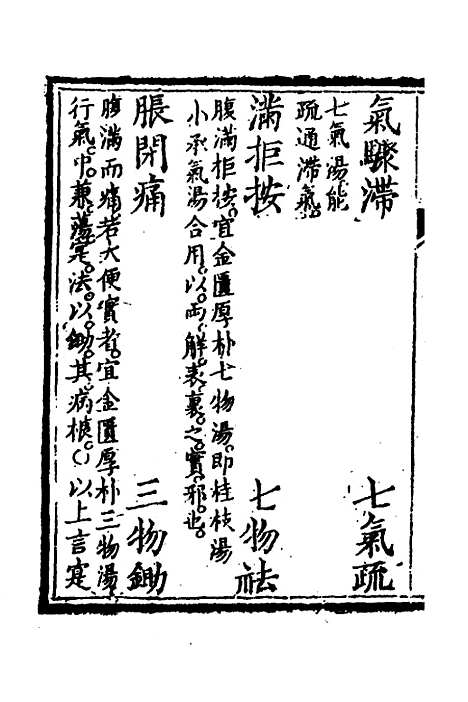 氣驟滯　七氣疏
七氣湯能
疏通滯氣。
滿拒按　七物祛
腹滿拒按。宜金匱厚朴七物湯。即桂枝湯
小承氣湯合用。以兩解表裏之實邪也。
脹閉痛　三物鋤
腹滿而痛。若大便實者。宜金匱厚朴三物湯。
行氣中。兼蕩實法。以鋤其病根。○以上言寔